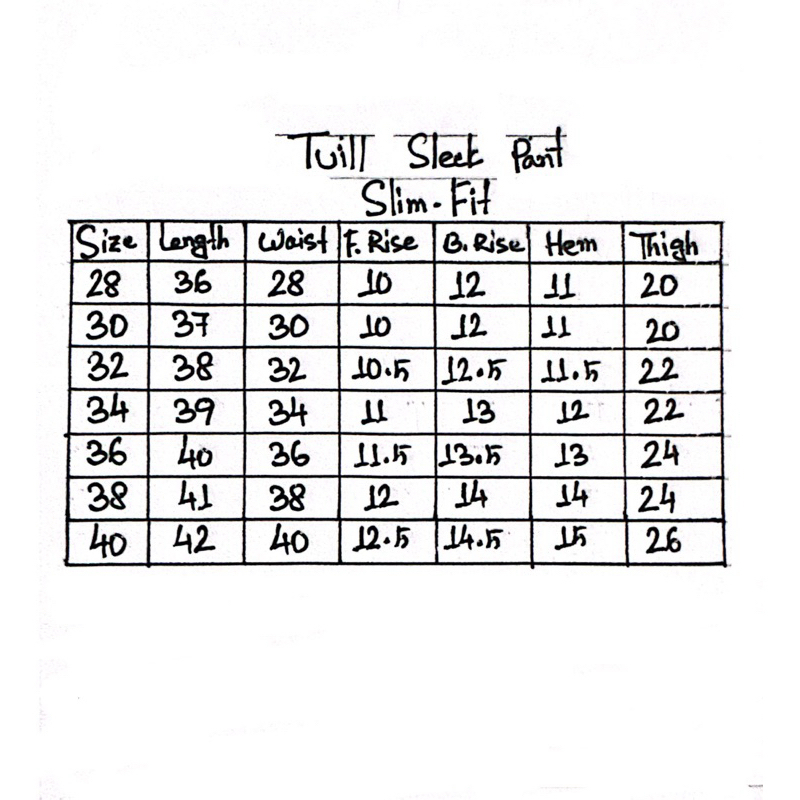 Tuill Sleek Pant
Slim-Fit
Size Length Waist F. Rise B. Rise Hem Thigh
28 36 28 10 12 11 20
30 37 30 10 12 11 20
32 38 32 10.5 12.5 11.5 22
34 39 34 11 13 12 22
36 40 36 11.5 13.5 13 24
38 41 38 12 14 14 24
40 42 40 12.5 14.5 15 26